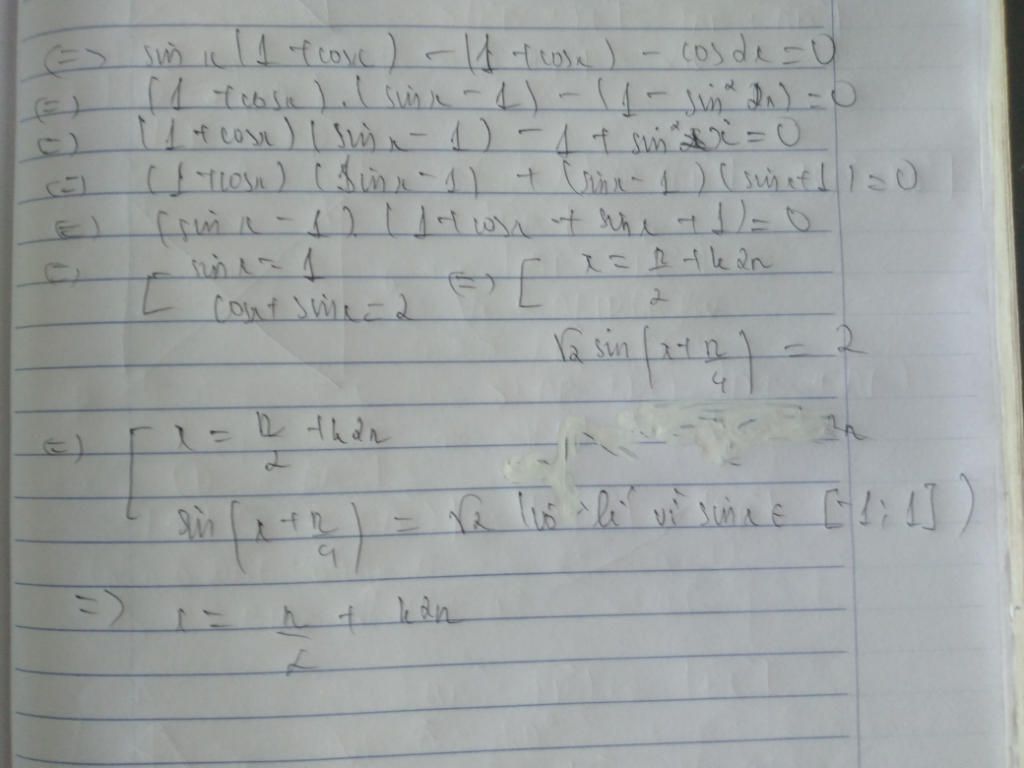 <=> sin x (1 + cosx) - (1 + cosx) - cos2x = 0
<=> (1 + cosx).(sinx - 1) - (1 - sin² 2x) = 0
<=> (1 + cosx) (sinx - 1) - 1 + sin²x = 0
<=> (1 + cosx) (sinx - 1) + (sinx - 1) (sinx + 1) = 0
<=> (sin x - 1) (1 + cosx + sinx + 1) = 0
<=> [ sinx = 1 <=> [ x = π/2 + k2π
cosx + sinx = 2
√2 sin (x + π/4) = 2
<=> [ x = π/2 + k2π
sin (x + π/4) = √2 (vô lí vì sinx ∈ [-1; 1])
=> x = π/2 + k2π